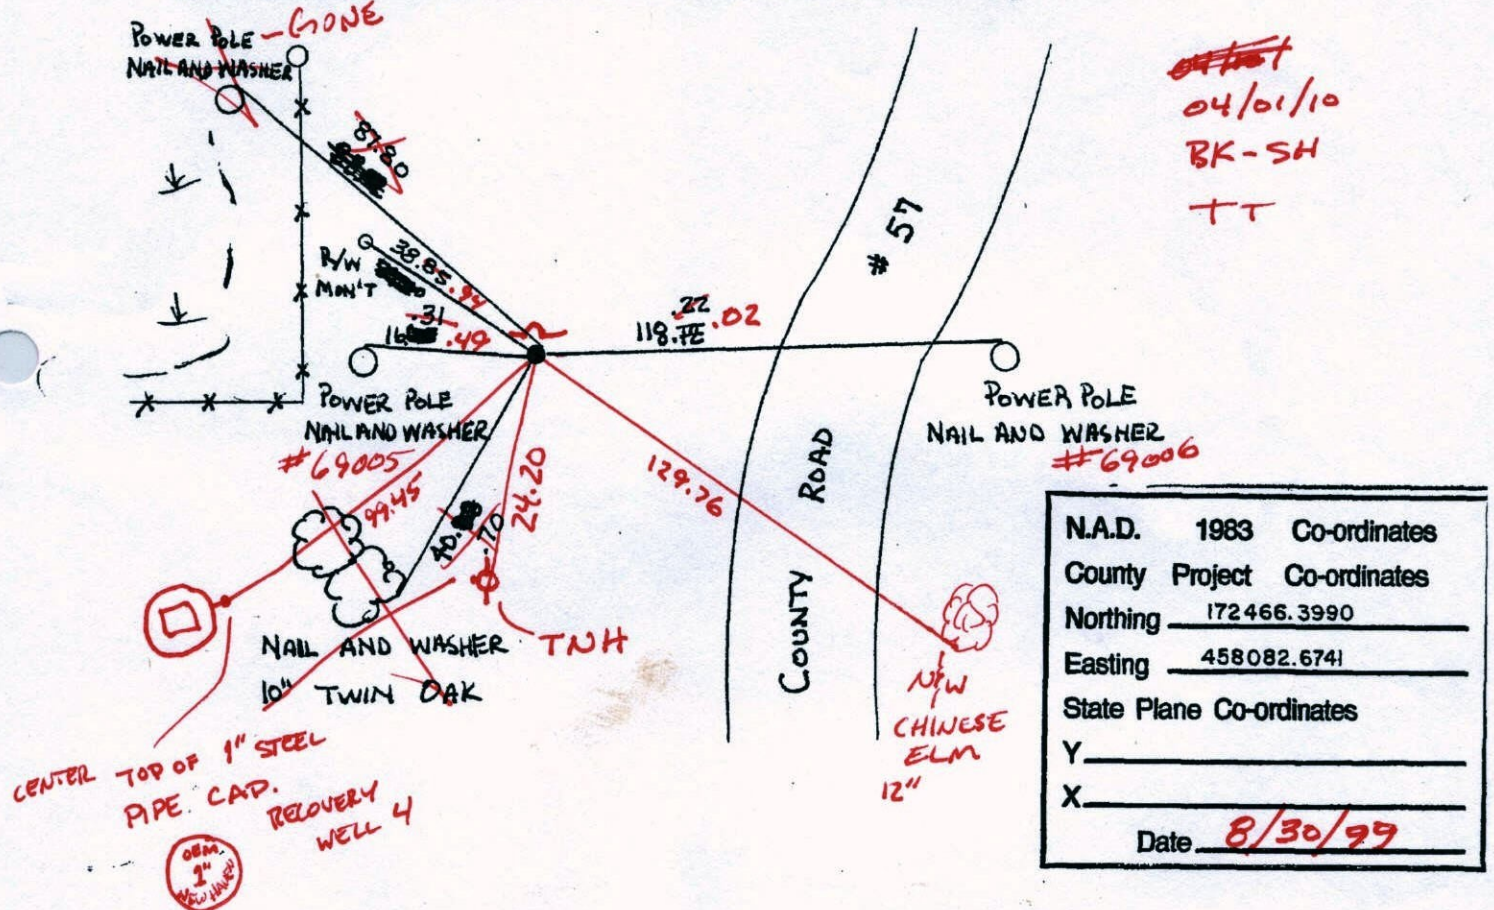 POWER POLE - GONE
NAIL AND WASHER
04/01/10
BK-SH
TT
87.80
# 57
R/W
MON'T
38.85 .94
16 .31 .49
118. .22 .02
POWER POLE
NAIL AND WASHER
#69005
POWER POLE
NAIL AND WASHER
#69006
99.45
40. .70
24.20
129.76
COUNTY ROAD
NAIL AND WASHER
10" TWIN OAK
TNH
N/W
CHINESE
ELM
12"
CENTER TOP OF 1" STEEL
PIPE CAP.
RECOVERY
WELL 4
1"
NEW HAVEN
N.A.D. 1983 Co-ordinates
County Project Co-ordinates
Northing 172466.3990
Easting 458082.6741
State Plane Co-ordinates
Y
X
Date 8/30/99